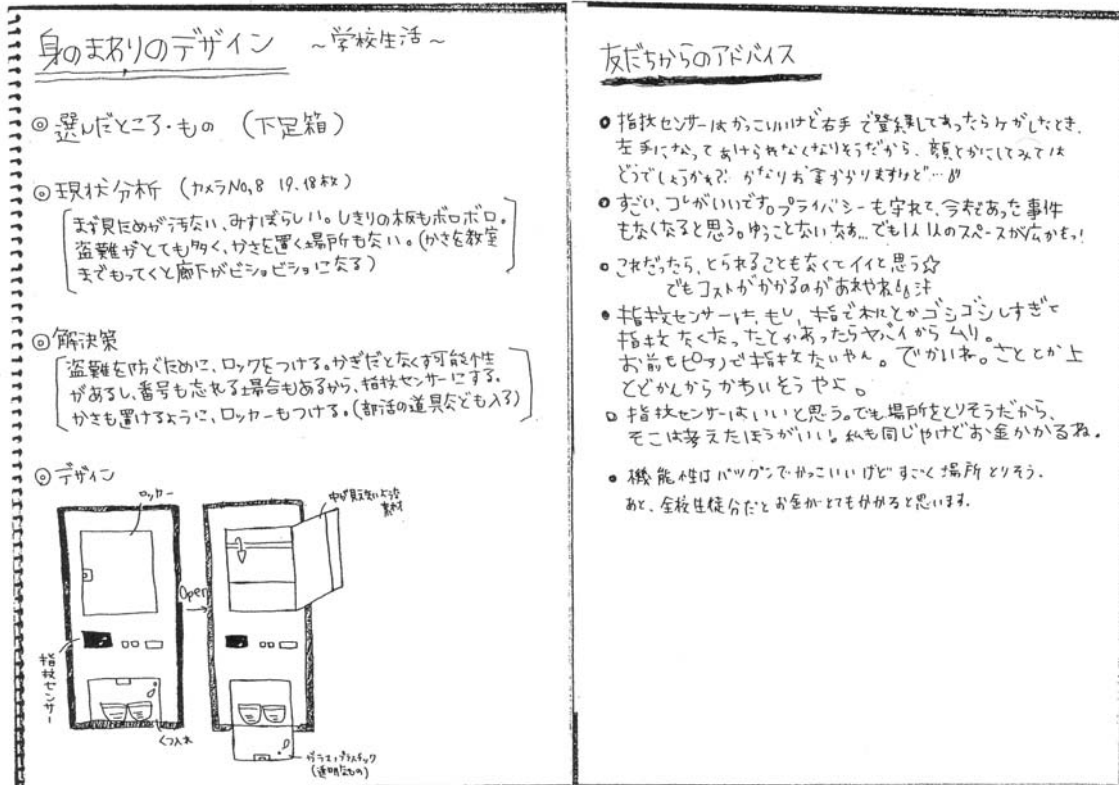 身のまわりのデザイン ～学校生活～
◎選んだところ・もの （下足箱）
◎現状分析 （カメラNo,8 19.18枚）
まず見ためが汚ない、みすぼらしい。しきりの板もボロボロ。
盗難がとても多く、かさを置く場所もない。（かさを教室
までもってくと廊下がビショビショになる）
◎解決策
盗難を防ぐために、ロックをつける。かぎだとなくす可能性
があるし、番号も忘れる場合もあるから、指紋センサーにする。
かさも置けるように、ロッカーもつける。（部活の道具なども入る）
◎デザイン
ロッカー
中が見えないような
素材
Open
指紋センサー
くつ入れ
ガラス、プラスチック
（透明なもの）
友だちからのアドバイス
指紋センサーはかっこいいけど右手で登録してあったらケガしたとき、
左手になってあけられなくなりそうだから、顔とかにしてみては
どうでしょうかね?! かなりお金かかりますけど…
すごい、コレがいいです。プライバシーも守れて、今まであった事件
もなくなると思う。ゆうことないなあ...でも1人1人のスペースが広かもっ!
これだったら、とられることもなくてイイと思う☆
でもコストがかかるのがあれやね
指紋センサーは、もし、指で木にとかゴシゴシしすぎて
指紋なくなったとかあったらヤバイからムリ。
お前もピアノで指紋ないやん。でかいね。さととか上
とどかんからかわいそうやよ。
指紋センサーはいいと思う。でも場所をとりそうだから、
そこは考えたほうがいい。私も同じやけどお金かかるね。
機能性はバツグンでかっこいいけどすごく場所とりそう。
あと、全校生徒分だとお金がとてもかかると思います。